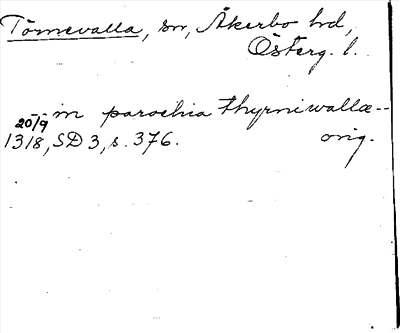 Törnevalla, sn, Åkerbo hd,
Österg. l.
in parochia thyrniwallæ--
20/9
1318, SD 3, s. 376. orig.